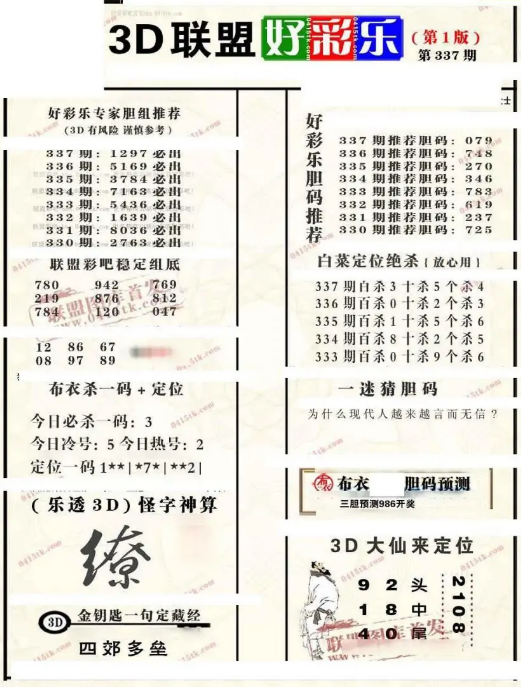 3D联盟好彩乐
(第1版)
第337期
好彩乐专家胆组推荐
(3D有风险 谨慎参考)
337期:1297必出
336期:5169必出
335期:3784必出
334期:7163必出
333期:5436必出
332期:1639必出
331期:8036必出
330期:2763必出
联盟彩吧稳定组底
780 942 769
219 876 812
784 120 047
12 86 67
08 97 89
布衣杀一码+定位
今日必杀一码:3
今日冷号:5今日热号:2
定位一码1**|*7*|**2|
(乐透3D)怪字神算
缭
3D 金钥匙一句定藏经
四郊多垒
好彩乐胆码推荐
337期推荐胆码:079
336期推荐胆码:748
335期推荐胆码:270
334期推荐胆码:346
333期推荐胆码:783
332期推荐胆码:619
331期推荐胆码:237
330期推荐胆码:725
白菜定位绝杀{放心用}
337期百杀3十杀5个杀4
336期百杀0十杀2个杀3
335期百杀1十杀5个杀6
334期百杀8十杀2个杀5
333期百杀0十杀9个杀6
一迷猜胆码
为什么现代人越来越言而无信?
布衣 胆码预测
三胆预测986开奖
3D大仙来定位
92头
18中
40尾
2108
联盟图库首发
0415tk.com